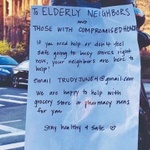 To ELDERLY NEIGHBORS
and
THOSE WITH COMPROMISED HEALTH
If you need help or don't feel
safe going to busy stores right
now, your neighbors are here to
help!
email TRUDYJUNE14@gmail.com
We are happy to help with
grocery store or pharmacy items
for you
Stay healthy & safe ♡